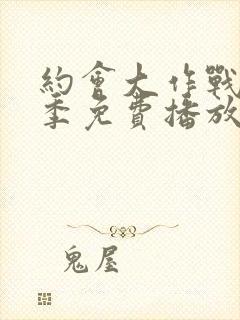 約會大作戰
季免費播放
鬼屋